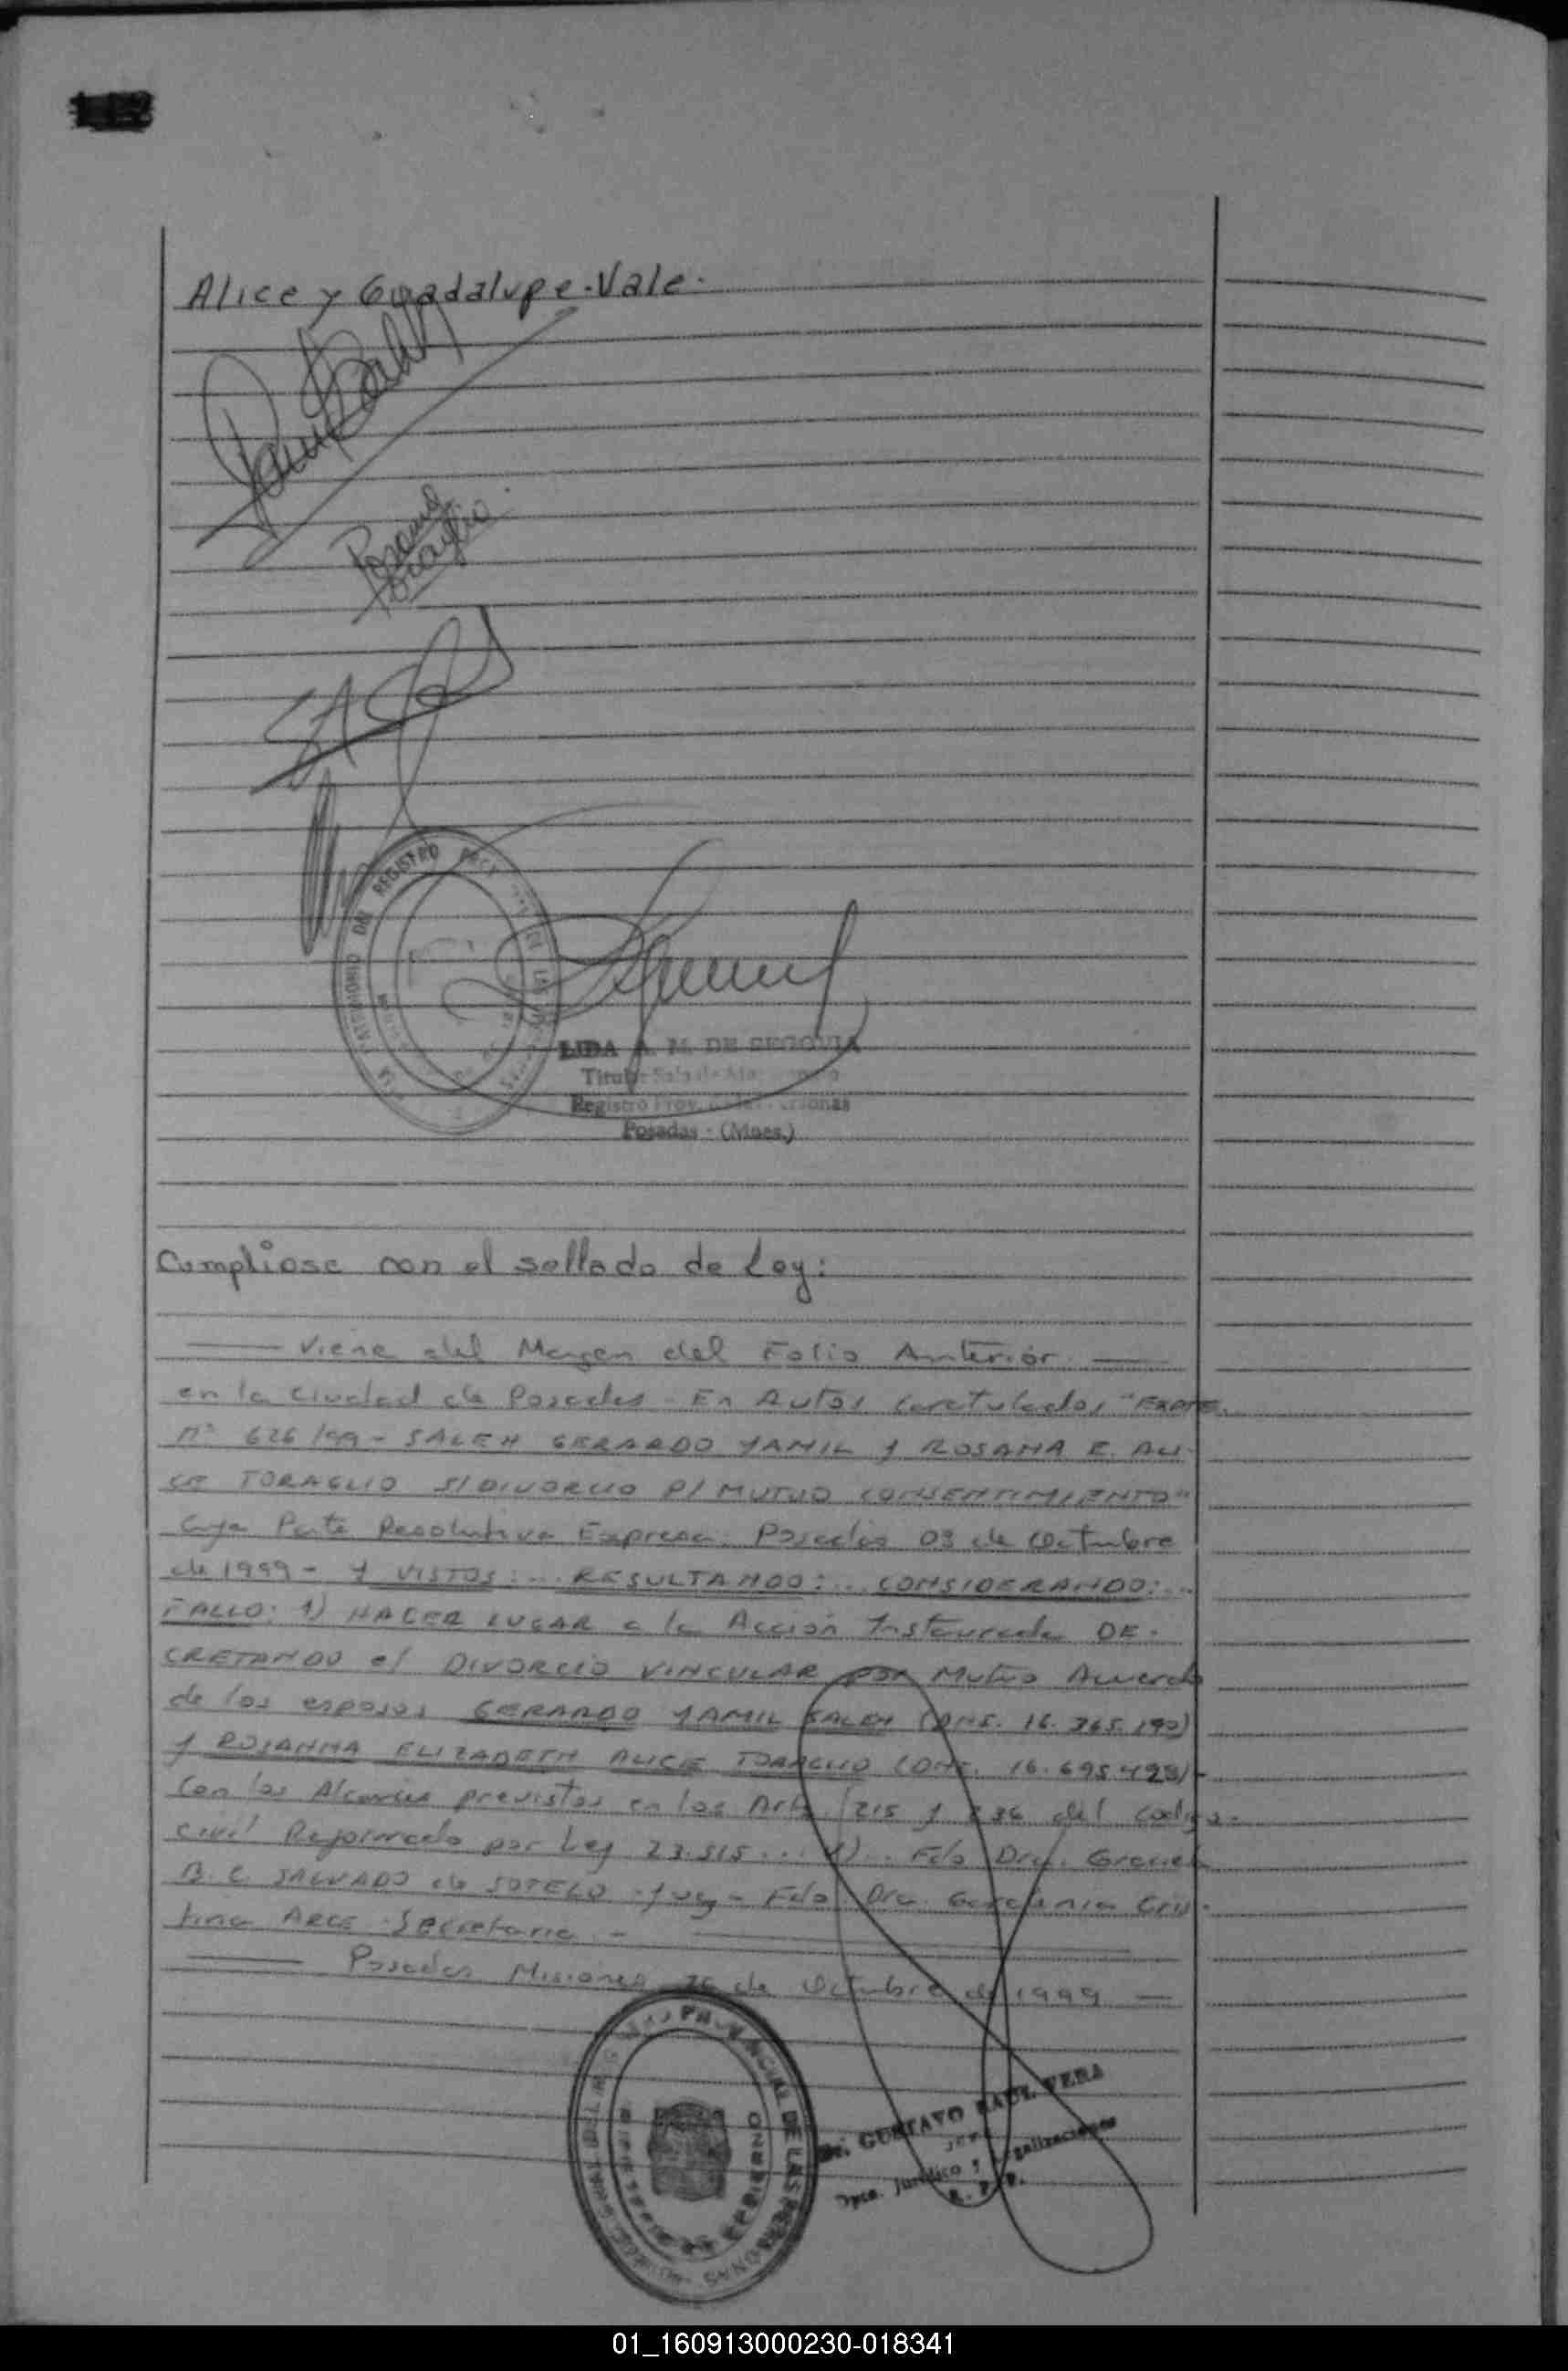 112
Alice y Guadalupe. Vale.
Rosana
Toraglio
REGISTRO
LIDA A. M. DE SEGOVIA
Titular Sala de
Registro Prov. de las Personas
Posadas - (Mnes.)
Cumpliose con el sellado de Ley:
Viene del Margen del Folio Anterior
en la Ciudad de Posadas - En Autos Caratulados "EXPTE.
n° 626/99 - SALEH GERARDO YAMIL y ROSANA E. ALI-
CE TORAGLIO S/DIVORCIO P/ MUTUO CONSENTIMIENTO"
Cuya Parte Resolutiva Expresa: Posadas 03 de Octubre
de 1999 - Y VISTOS:... RESULTANDO:... CONSIDERANDO:...
FALLO: 1) HACER LUGAR a la Acción Instaurada DE-
CRETANDO el DIVORCIO VINCULAR POR Mutuo Acuerdo
de los esposos GERARDO YAMIL SALEH (DNI. 16.365.190)
y ROSANNA ELIZABETH ALICE TORAGLIO (DNI. 16.695.428) -
Con los Alcances previstos en los Arts. 215 y 236 del Codigo-
civil Reformado por Ley 23.515... Fdo Dra. Graciela
B. C. SALVADO de SOTELO - Juez - Fdo Dra. Cris-
tina ARCE - Secretaria. -
Posadas Misiones 26 de Octubre de 1999 -
PROVINCIAL DE LAS PERSONAS
Dr. GUSTAVO RAUL VERA
JEFE
Dpto. Jurídico y Legalizaciones
R. P. P.
01_160913000230-018341